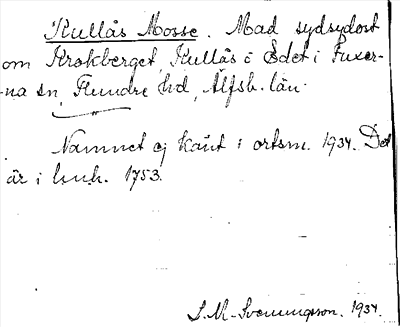 Kullås Mosse. Mad sydsydost
om Krokberget, Kullås i Edet i Fuxer-
-na sn, Flundre hd, Älfsb. län.
Namnet ej känt i ortsm. 1934. Det
är i 1753.
S. M. Svenungsson. 1934.